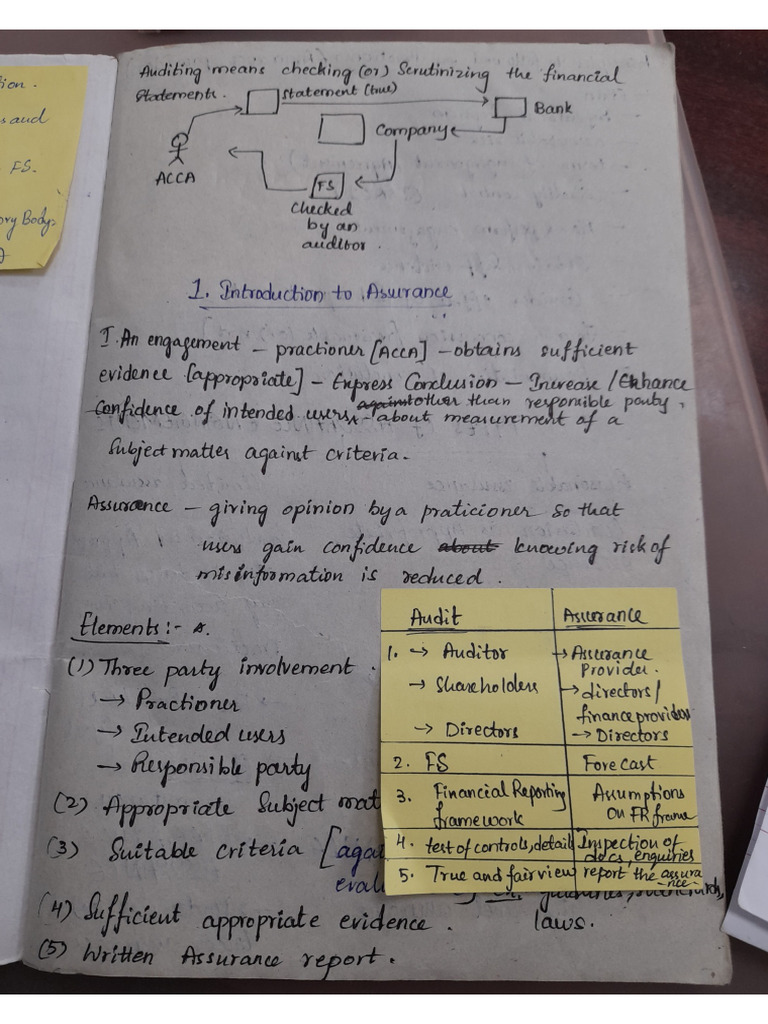 ion.
s and
FS.
ory Body
Auditing means checking (or) Scrutinizing the financial
Statements.
Statement (true)
Bank
Company
ACCA
FS
Checked
by an
auditor.
1. Introduction to Assurance
I. An engagement – practioner [ACCA] – obtains sufficient
evidence [appropriate] – Express Conclusion – Increase / Enhance
Confidence of intended users against other than responsible party,
– about measurement of a
Subject matter against criteria.
Assurance – giving opinion by a praticioner so that
users gain confidence about knowing risk of
misinformation is reduced.
Elements :-
(1) Three party involvement.
→ Practioner
→ Intended users
→ Responsible party
(2) Appropriate Subject mat
(3) Suitable criteria [agai
evalu
laws.
(4) Sufficient appropriate evidence.
(5) Written Assurance report.
Audit Assurance
1. → Auditor → Assurance
Provider.
→ Shareholders → directors /
finance providers
→ Directors → Directors
2. FS Forecast
3. Financial Reporting Assumptions
framework on FR frame
4. test of controls, details Inspection of
docs, enquiries
5. True and fair view report the assura
-nce-